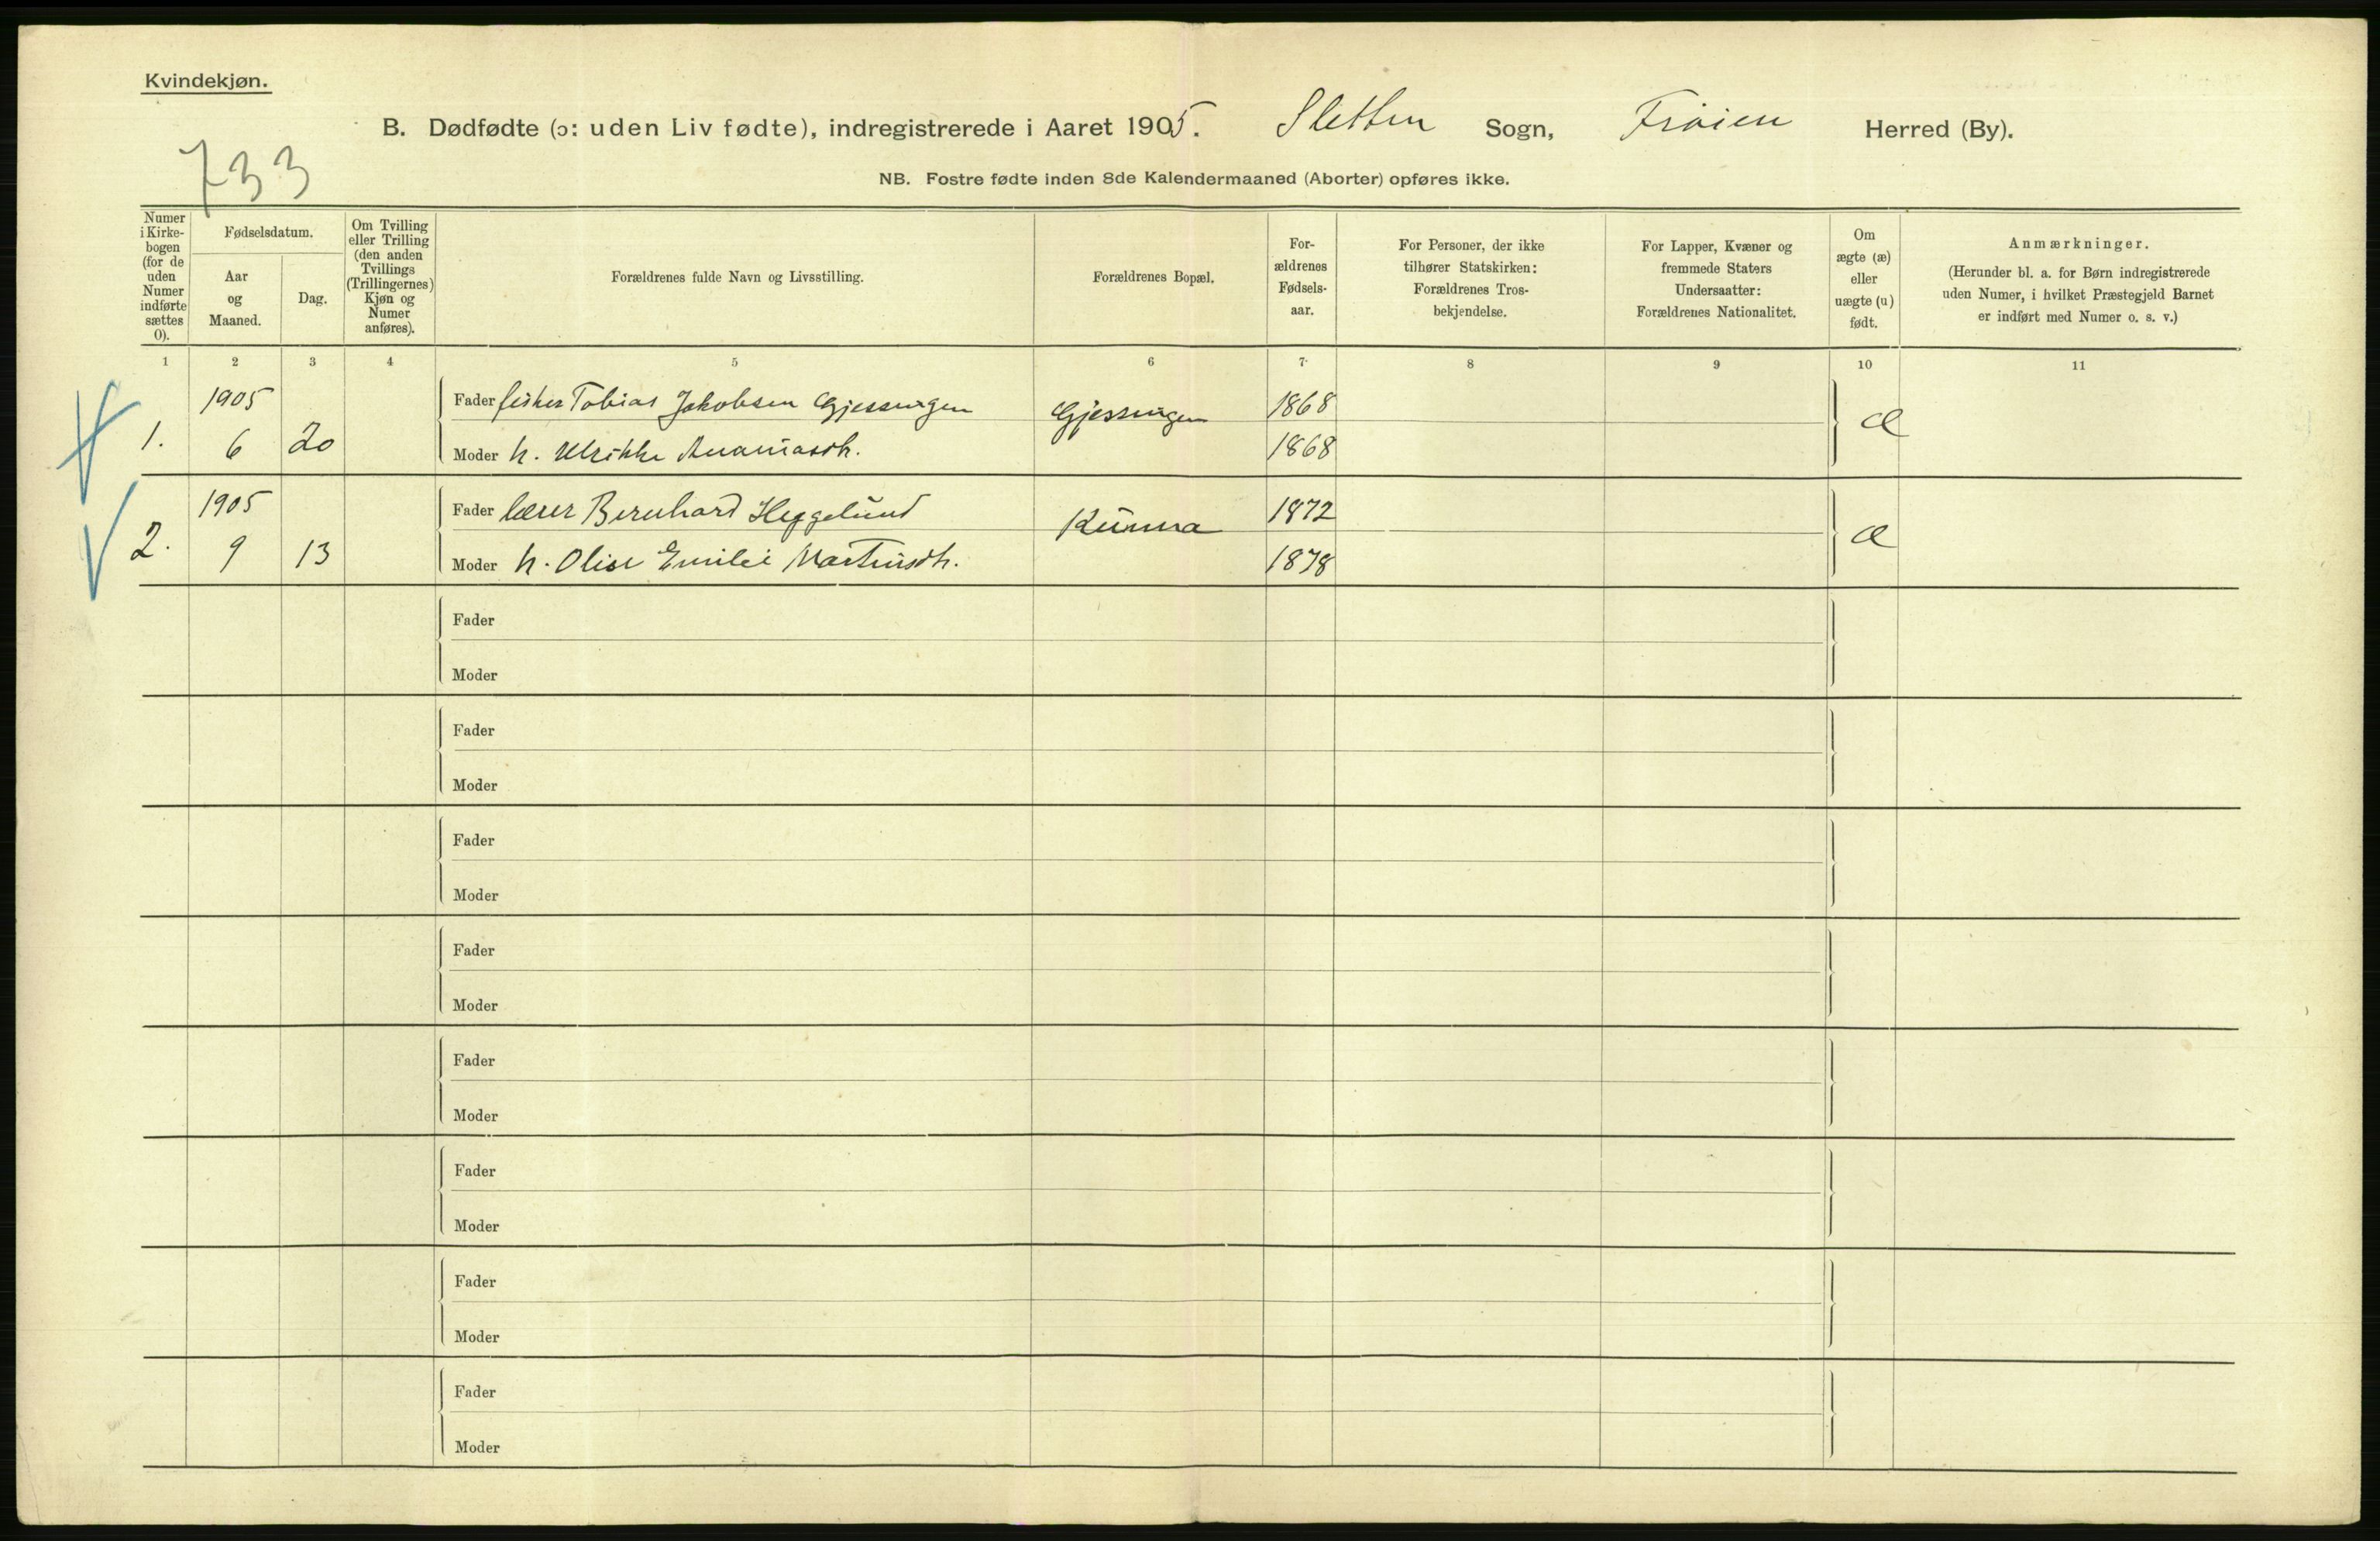 Kvindekjøn.
B. Dødfødte (ɔ: uden Liv fødte), indregistrerede i Aaret 1905. Sletten Sogn, Frøien Herred (By).
733
NB. Fostre fødte inden 8de Kalendermaaned (Aborter) opføres ikke.
Numer i Kirke-bogen (for de uden Numer indførte sættes 0).
Fødselsdatum.
Aar og Maaned.
Dag.
Om Tvilling eller Trilling (den anden Tvillings (Trillingernes) Kjøn og Numer anføres).
Forældrenes fulde Navn og Livsstilling.
Forældrenes Bopæl.
For-ældrenes Fødsels-aar.
For Personer, der ikke tilhører Statskirken: Forældrenes Tros-bekjendelse.
For Lapper, Kvæner og fremmede Staters Undersaatter: Forældrenes Nationalitet.
Om ægte (æ) eller uægte (u) født.
Anmærkninger.
(Herunder bl. a. for Børn indregistrerede uden Numer, i hvilket Præstegjeld Barnet er indført med Numer o. s. v.)
1 2 3 4 5 6 7 8 9 10 11
1905 Fader fisker Tobias Jakobsen Gjessingen Gjessingen 1868 æ
1. 6 20 Moder h. Ulrikke Ananiasdt. 1868
1905 Fader lærer Bernhard Heggelund Kunna 1872 æ
2. 9 13 Moder h. Olise Emilie Martinsdt. 1878
Fader
Moder
Fader
Moder
Fader
Moder
Fader
Moder
Fader
Moder
Fader
Moder
Fader
Moder
Fader
Moder